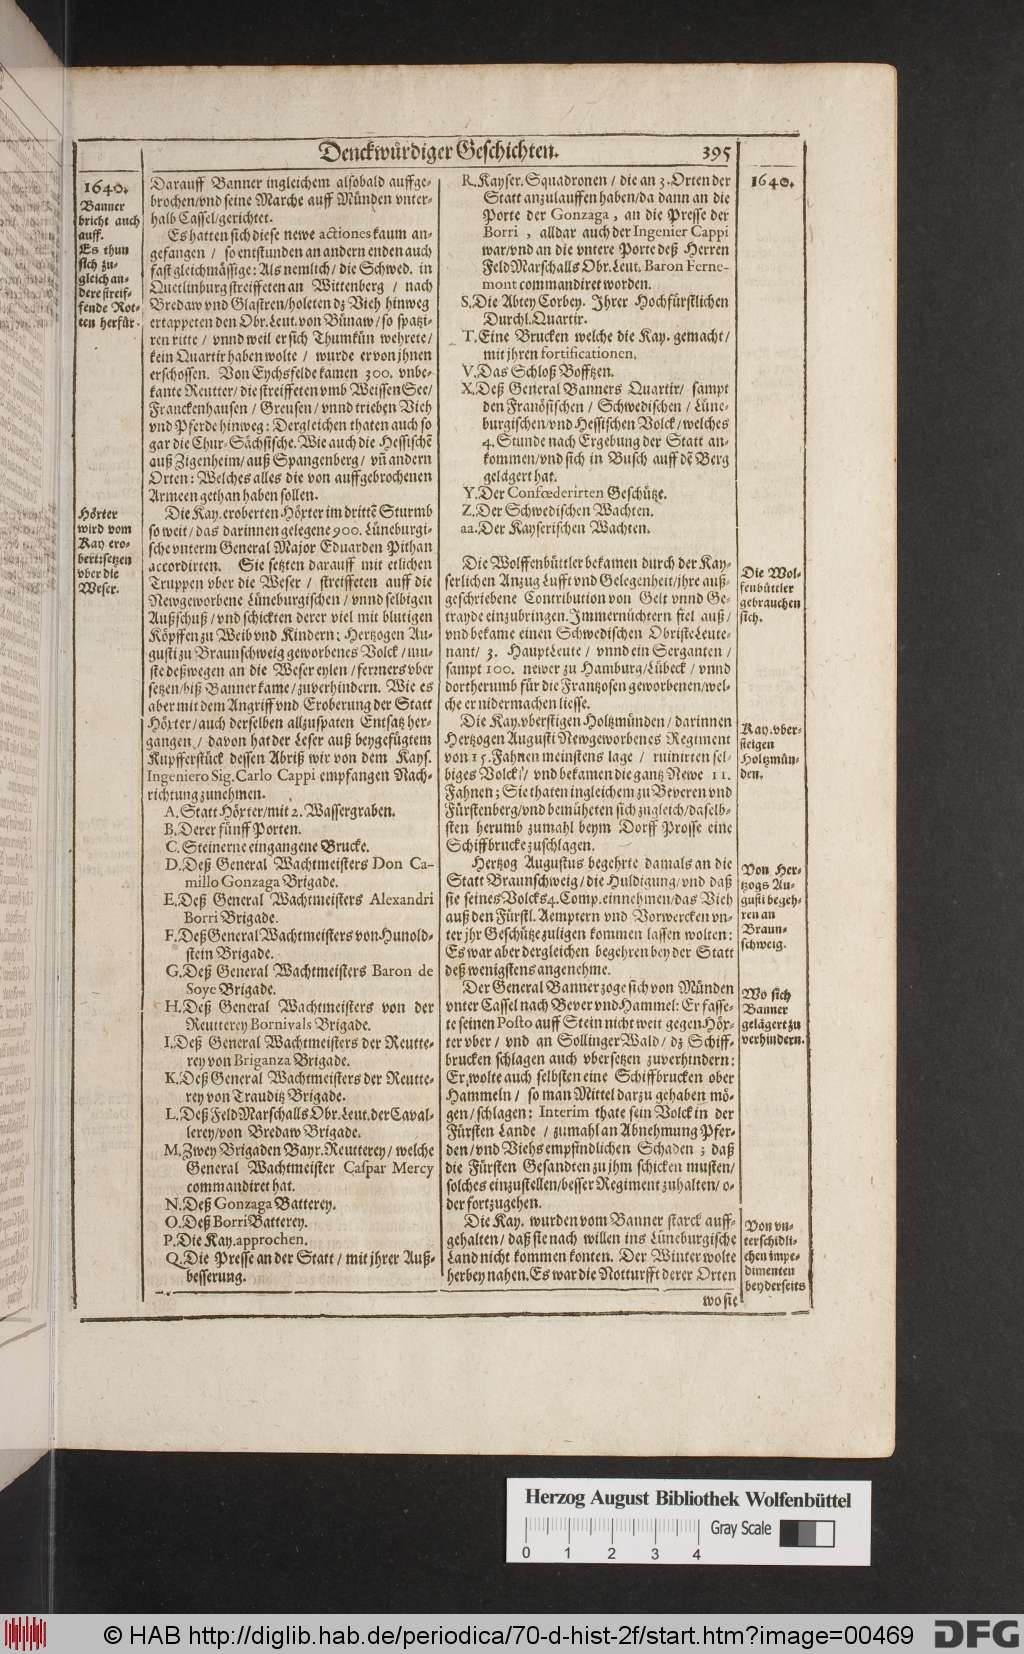 Denckwürdiger Geschichten. 395
1640.
Banner
bricht auch
auff.
Es thun
sich zu-
gleich an-
dere streif-
fende Rot-
ten herfür.
Höxter
wird vom
Kay ero-
bert: setzen
vber die
Weser.
Darauff Banner ingleichem alsobald auffge-
brochen/vnd seine Marche auff Münden vnter-
halb Cassel/gerichtet.
Es hatten sich diese newe actiones kaum an-
gefangen / so entstunden an andern enden auch
fast gleichmässige: Als nemlich/ die Schwed. in
Quetlinburg streiffeten an Wittenberg / nach
Bredaw vnd Glastren/holeten dz Vieh hinweg
ertappeten den Obr. Leut. von Bünaw/ so spatzi-
ren ritte / vnnd weil er sich Thumkün wehrete/
kein Quartir haben wolte / wurde er von jhnen
erschossen. Von Eychsfelde kamen 300. vnbe-
kante Reutter/ die streiffeten vmb Weissen See/
Franckenhausen / Greusen / vnnd trieben Vieh
vnd Pferde hinweg: Dergleichen thaten auch so
gar die Chur-Sächsische. Wie auch die Hessischē
auß Zigenheim/ auß Spangenberg/ vñ andern
Orten: Welches alles die von auffgebrochenen
Armeen gethan haben sollen.
Die Kay. eroberten Höxter im drittē Sturmb
so weit/ das darinnen gelegene 900. Lüneburgi-
sche vnterm General Major Eduarden Pithan
accordirten. Sie setzten darauff mit etlichen
Truppen vber die Weser / streiffeten auff die
Newgeworbene Lüneburgischen / vnnd selbigen
Außschuß/ vnd schickten derer viel mit blutigen
Köpffen zu Weib vnd Kindern: Hertzogen Au-
gusti zu Braunschweig geworbenes Volck/ mu-
ste deßwegen an die Weser eylen / ferners vber
setzen/ biß Banner kame/ zuverhindern. Wie es
aber mit dem Angriff vnd Eroberung der Statt
Höxter/ auch derselben allzuspaten Entsatz her-
gangen / davon hat der Leser auß beygefügtem
Kupfferstück dessen Abriß wir von dem Kays.
Ingeniero Sig. Carlo Cappi empfangen Nach-
richtung zunehmen.
A. Statt Höxter/mit 2. Wassergraben.
B. Derer fünff Porten.
C. Steinerne eingangene Brucke.
D. Deß General Wachtmeisters Don Ca-
millo Gonzaga Brigade.
E. Deß General Wachtmeisters Alexandri
Borri Brigade.
F. Deß General Wachtmeisters von Hunold-
stein Brigade.
G. Deß General Wachtmeisters Baron de
Soye Brigade.
H. Deß General Wachtmeisters von der
Reutterey Bornivals Brigade.
I. Deß General Wachtmeisters der Reutte-
rey von Briganza Brigade.
K. Deß General Wachtmeisters der Reutte-
rey von Trauditz Brigade.
L. Deß FeldMarschalls Obr. Leut. der Caval-
lerey/von Bredaw Brigade.
M. Zwey Brigaden Bayr. Reutterey/ welche
General Wachtmeister Caspar Mercy
commandiret hat.
N. Deß Gonzaga Batterey.
O. Deß Borri Batterey.
P. Die Kay. approchen.
Q. Die Presse an der Statt / mit jhrer Auß-
besserung.
R. Kayser. Squadronen / die an 3. Orten der
Statt anzulauffen haben/da dann an die
Porte der Gonzaga, an die Presse der
Borri, alldar auch der Ingenier Cappi
war/vnd an die vntere Porte deß Herren
FeldMarschalls Obr. Leut. Baron Ferne-
mont commandiret worden.
S. Die Abtey Corbey. Jhrer Hochfürstlichen
Durchl. Quartir.
T. Eine Brucken welche die Kay. gemacht/
mit jhren fortificationen.
V. Das Schloß Bofftzen.
X. Deß General Banners Quartir/ sampt
den Franösischen / Schwedischen / Lüne-
burgischen/vnd Hessischen Volck/welches
4. Stunde nach Ergebung der Statt an-
kommen/vnd sich in Busch auff dē Berg
gelägert hat.
Y. Der Confœderirten Geschütze.
Z. Der Schwedischen Wachten.
aa. Der Kayserischen Wachten.
Die Wolffenbüttler bekamen durch der Kay-
serlichen Anzug Lufft vnd Gelegenheit/jhre auß-
geschriebene Contribution von Gelt vnnd Ge-
trayde einzubringen. Jmmernüchtern fiel auß/
vnd bekame einen Schwedischen ObristeLeute-
nant/ 3. HauptLeute / vnnd ein Serganten /
sampt 100. newer zu Hamburg/Lübeck / vnnd
dortherumb für die Frantzosen geworbenen/wel-
che er nidermachen liesse.
Die Kay. vberstigen Holtzmünden/ darinnen
Hertzogen Augusti Newgeworbenes Regiment
von 15. Fahnen meinstens lage / ruinirten sel-
biges Volck / vnd bekamen die gantz Newe 11.
Fahnen; Sie thaten ingleichem zu Beveren vnd
Fürstenberg/vnd bemüheten sich zugleich/daselb-
sten herumb zumahl beym Dorff Prosse eine
Schiffbrucke zuschlagen.
Hertzog Augustus begehrte damals an die
Statt Braunschweig/ die Huldigung/ vnd daß
sie seines Volcks 4. Comp. einnehmen/das Vieh
auß den Fürstl. Aemptern vnd Vorwercken vn-
ter jhr Geschütze zuligen kommen lassen wolten:
Es war aber dergleichen begehren bey der Statt
deß wenigstens angenehme.
Der General Banner zoge sich von Münden
vnter Cassel nach Bever vnd Hammel: Er fasse-
te seinen Posto auff Stein nicht weit gegen Höx-
ter vber / vnd an Sollinger Wald/ dz Schiff-
brucken schlagen auch vbersetzen zuverhindern:
Er wolte auch selbsten eine Schiffbrucken ober
Hammeln / so man Mittel darzu gehaben mö-
gen/ schlagen: Interim thate sein Volck in der
Fürsten Lande / zumahl an Abnehmung Pfer-
den/ vnd Viehs empfindlichen Schaden ; daß
die Fürsten Gesandten zu jhm schicken musten/
solches einzustellen/besser Regiment zuhalten/ o-
der fortzugehen.
Die Kay. wurden vom Banner starck auff-
gehalten/ daß sie nach willen ins Lüneburgische
Land nicht kommen konten. Der Winter wolte
herbey nahen. Es war die Notturfft derer Orten
wo sie
1640.
Die Wol-
fenbüttler
gebrauchen
sich.
Kay. vber-
steigen
Holtzmün-
den.
Von Her-
tzogs Au-
gusti begeh-
ren an
Braun-
schweig.
Wo sich
Banner
gelägert zu
verhindern.
Von vn-
terschidli-
chen impe-
dimenten
beyderseits
Herzog August Bibliothek Wolfenbüttel
Gray Scale
0 1 2 3 4
© HAB http://diglib.hab.de/periodica/70-d-hist-2f/start.htm?image=00469
DFG